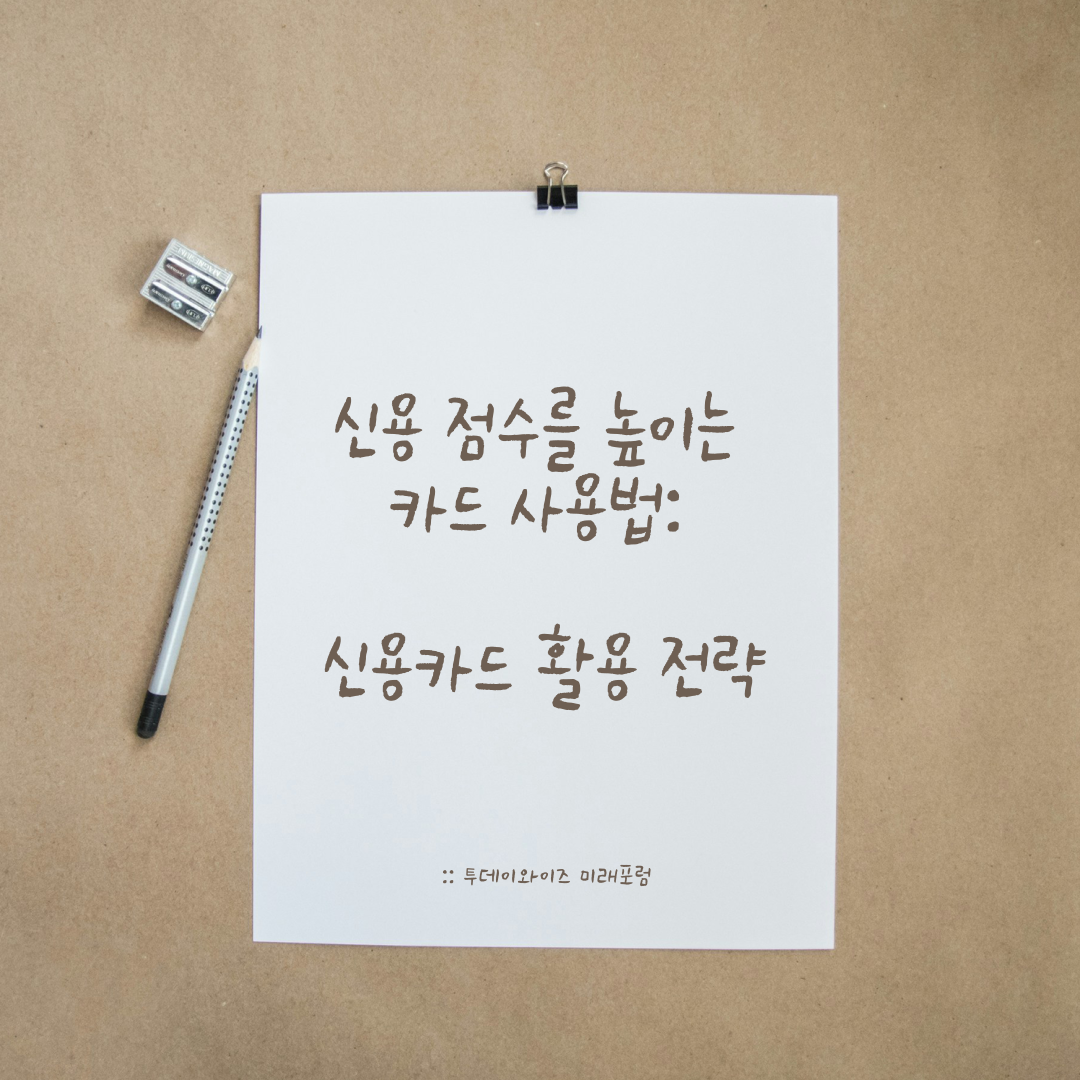 신용 점수를 높이는
카드 사용법:
신용카드 활용 전략
:: 투데이와이즈 미래포럼